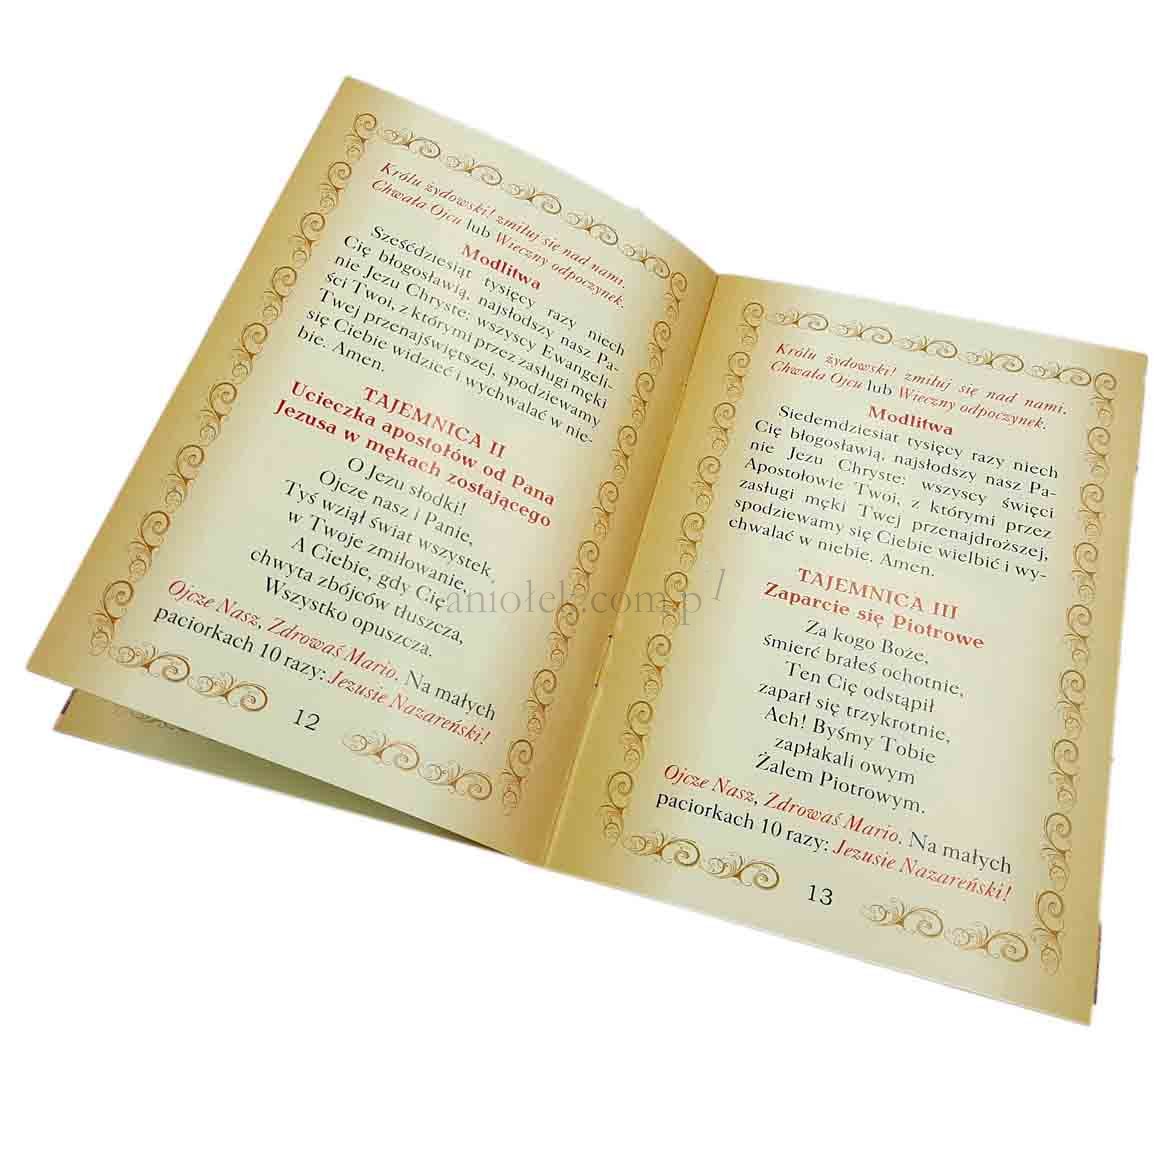 Królu żydowski! zmiłuj się nad nami.
Chwała Ojcu lub Wieczny odpoczynek.
Modlitwa
Sześćdziesiąt tysięcy razy niech
Cię błogosławią, najsłodszy nasz Pa-
nie Jezu Chryste: wszyscy Ewangeli-
ści Twoi, z którymi przez zasługi męki
Twej przenajświętszej, spodziewamy
się Ciebie widzieć i wychwalać w nie-
bie. Amen.
TAJEMNICA II
Ucieczka apostołów od Pana
Jezusa w mękach zostającego
O Jezu słodki!
Ojcze nasz i Panie,
Tyś wziął świat wszystek
w Twoje zmiłowanie,
A Ciebie, gdy Cię
chwyta zbójców tłuszcza,
Wszystko opuszcza.
Ojcze Nasz, Zdrowaś Mario. Na małych
paciorkach 10 razy: Jezusie Nazareński!
12
Królu żydowski! zmiłuj się nad nami.
Chwała Ojcu lub Wieczny odpoczynek.
Modlitwa
Siedemdziesiat tysięcy razy niech
Cię błogosławią, najsłodszy nasz Pa-
nie Jezu Chryste: wszyscy święci
Apostołowie Twoi, z którymi przez
zasługi męki Twej przenajdroższej,
spodziewamy się Ciebie wielbić i wy-
chwalać w niebie. Amen.
TAJEMNICA III
Zaparcie się Piotrowe
Za kogo Boże,
śmierć brałeś ochotnie,
Ten Cię odstąpił
zaparł się trzykrotnie,
Ach! Byśmy Tobie
zapłakali owym
Żalem Piotrowym.
Ojcze Nasz, Zdrowaś Mario. Na małych
paciorkach 10 razy: Jezusie Nazareński!
13
aniołek.com.pl